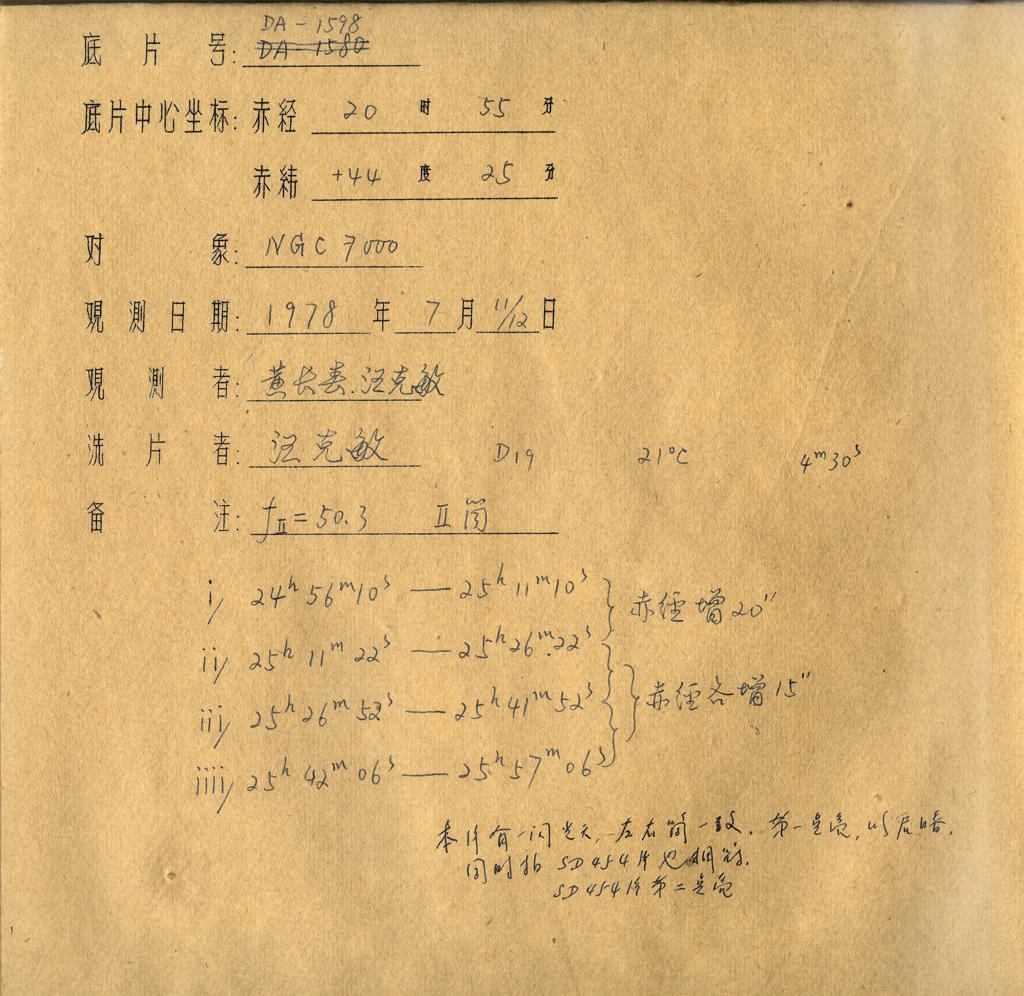 DA-1598
底片号: DA-1580
底片中心坐标: 赤经 20 时 55 分
赤纬 +44 度 25 分
对象: NGC 7000
观测日期: 1978 年 7 月 11/12 日
观测者: 黄长春.汪克敏
洗片者: 汪克敏 D19 21°C 4m30s
备注: fII=50.3 II筒
i) 24h 56m10s — 25h 11m10s
赤经增20"
ii) 25h 11m 22s — 25h 26m.22s
iii) 25h 26m 52s — 25h 41m 52s
赤经各增15"
iiii) 25h 42m 06s — 25h 57m 06s
本片有一闪光天, 左右筒一致. 第一星亮, 以后暗.
同时拍 SD454片也相符.
SD454片第二星亮